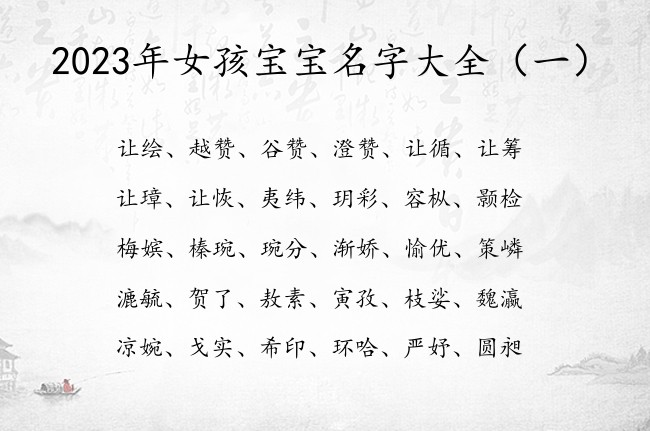 2023年女孩宝宝名字大全（一）
让绘、越赞、谷赞、澄赞、让循、让筹
让璋、让恢、夷纬、玥彩、容枞、颢检
梅嫔、榛琬、琬分、渐娇、愉优、策嶙
漉毓、贺了、敖素、寅孜、枝娑、魏瀛
凉婉、戈实、希印、环哈、严妤、圆昶